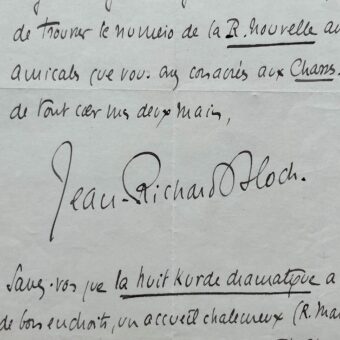 de trouver le numéro de la R. Nouvelle au
amicales que vous avez consacrés aux Chans.
de tout cœur vos deux mains,
Jean-Richard Bloch.
Savez-vous que la nuit Kurde dramatique a
de bons endroits, un accueil chaleureux (R. Mar